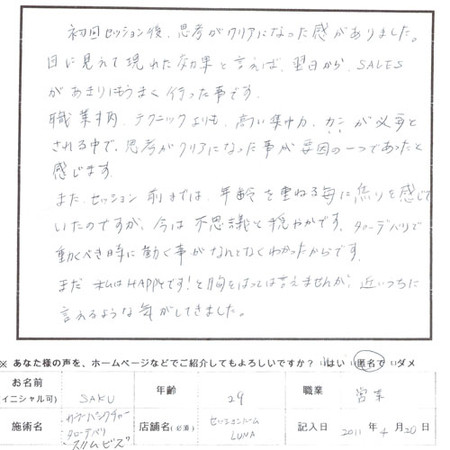 初回セッション後、思考がクリアになった感がありました。
目に見えて現れた効果と言えば、翌日から、SALES
があきりにもうまく行った事です。
職業柄、テクニックよりも、高い集中力、カンが必要と
される中で、思考がクリアになった事が要因の一つであったと
感じます。
また、セッション前までは、年齢を重ねる毎に焦りを感じて
いたのですが、今は不思議と穏やかです。タローデバリで
動くべき時に動く事がなんとなくわかったからです。
まだ 私はHAPPYです!と胸をはっては言えませんが、近いうちに
言えるような気がしてきました。
※ あなた様の声を、ホームページなどでご紹介してもよろしいですか? はい 匿名で ダメ
お名前 (イニシャル可) SAKU 年齢 29 職業 営業
施術名 タローデバリ スリムビズ 店舗名(必須) セッションルーム LUNA 記入日 2011年 4月20日